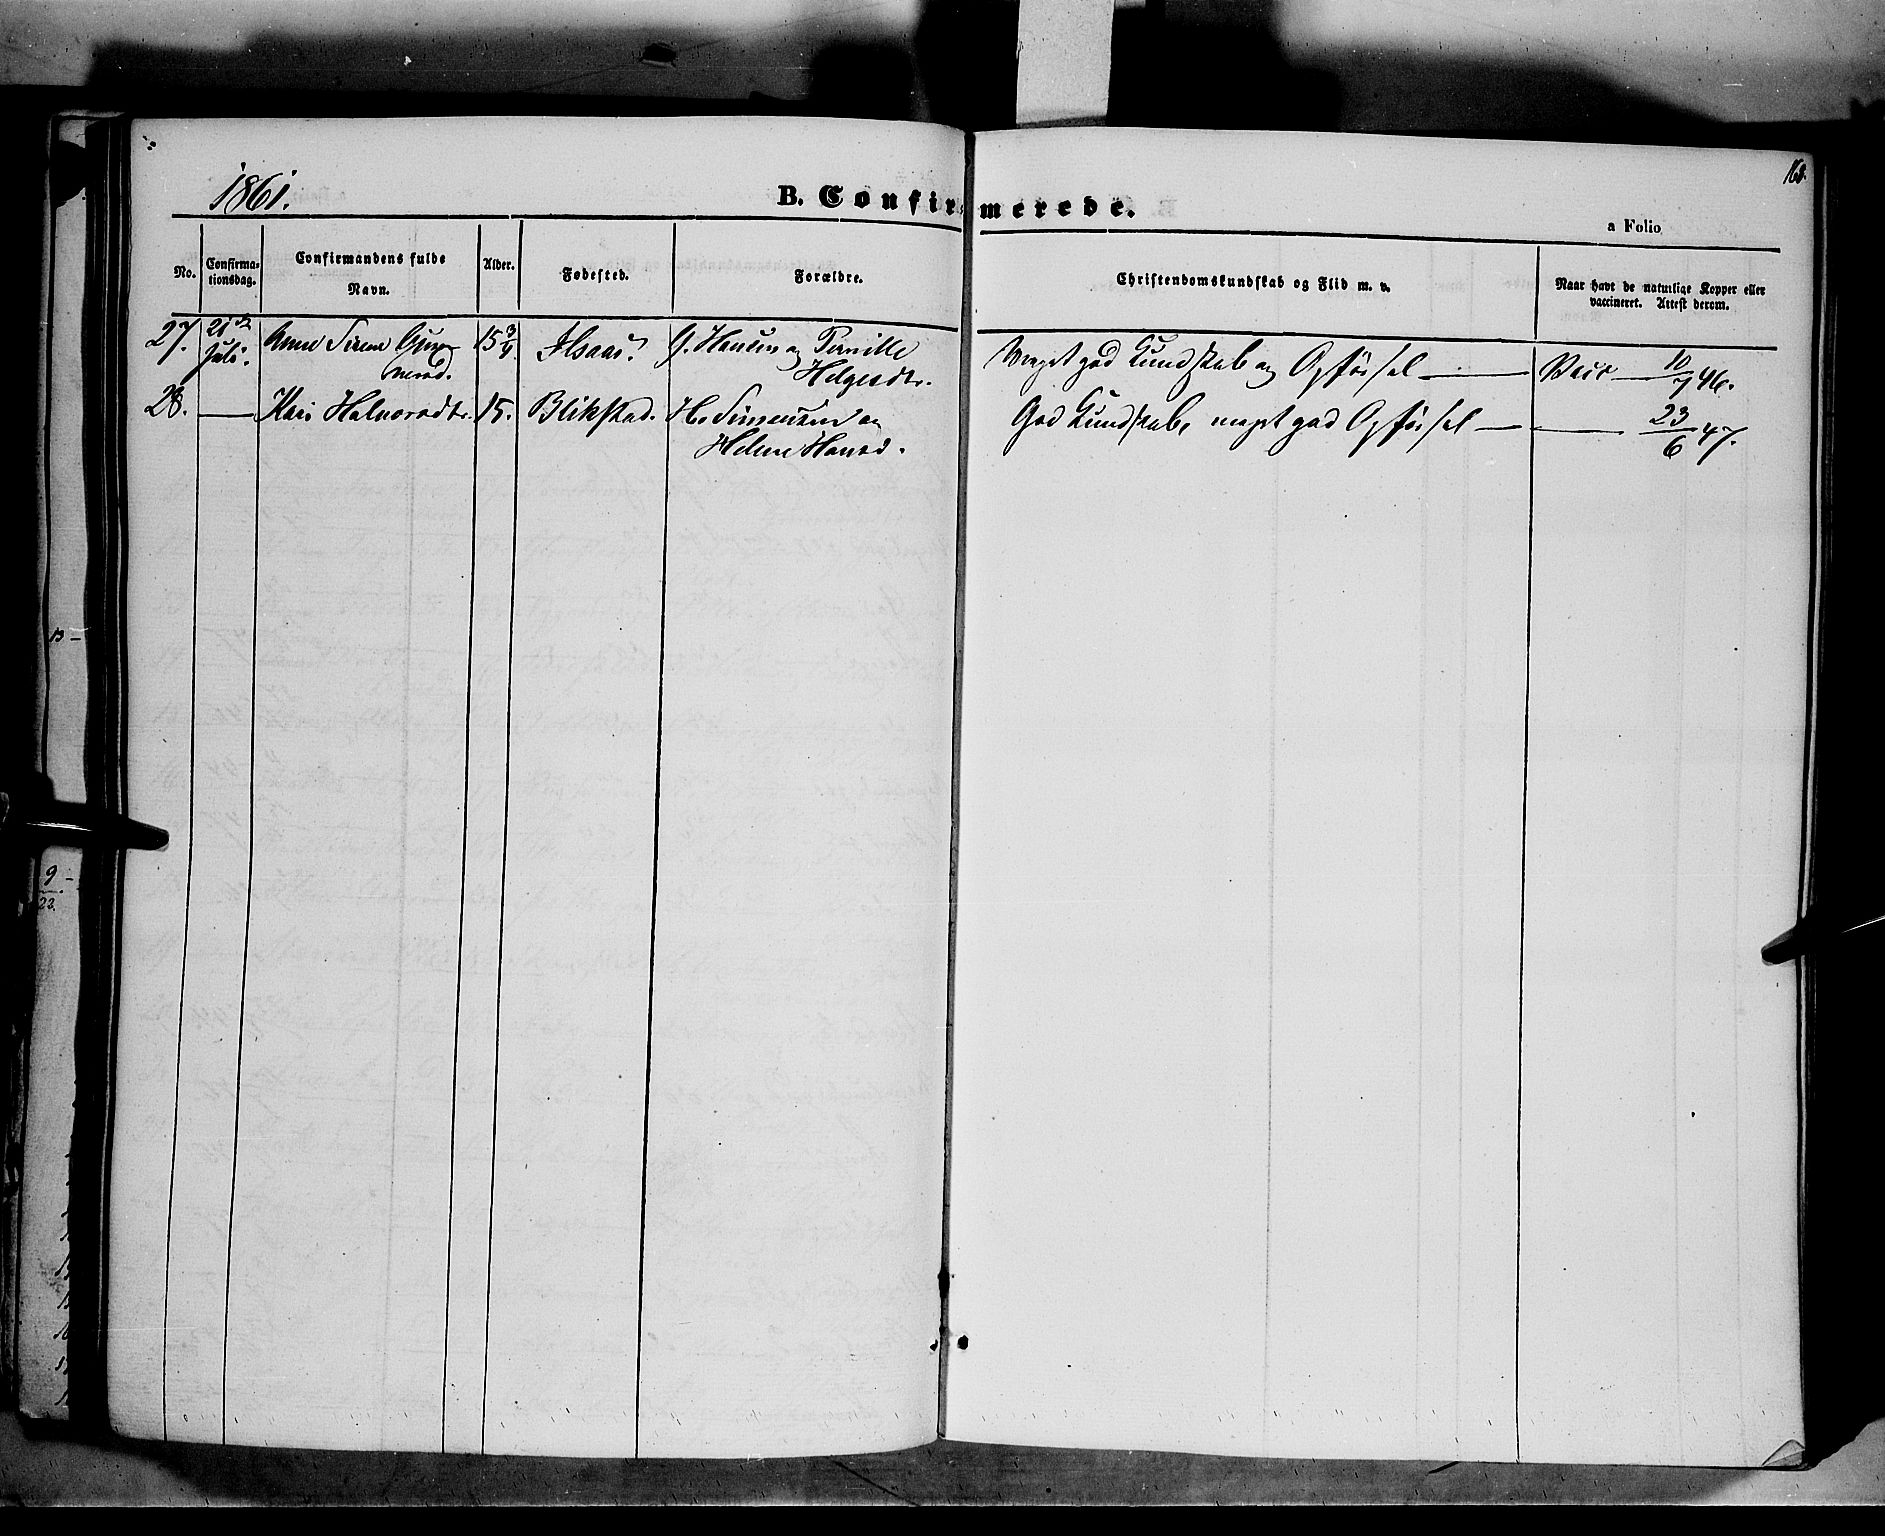 1861.
B. Confirmerede.
168.
a Folio
No.
Confirma-
tionsdag.
Confirmandens fulde
Navn.
Alder.
Fødested.
Forældre.
Christendomskundskab og Flid m. v.
Naar havt de naturlige Kopper eller
vaccineret. Attest derom.
27. 21de Juli. Anne Sirene Gun-
nersd. 15 3/4 G. Hansen og Pernille
Helgesdtr.
Meget god Kundskab og Opførsel — Vacc — 10/7 46.
28. — Kari Halvorsdtr. 15. Blikstad. H. Simensen og
Helene Hansd.
God Kundskab, meget god Opførsel — — 23/6 47.
13 -
9 -
22.